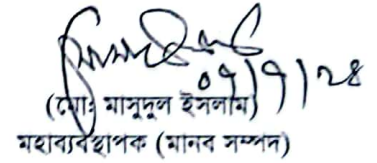 ০৭/৭/২৪
(মোঃ মাসুদুল ইসলাম)
মহাব্যবস্থাপক (মানব সম্পদ)